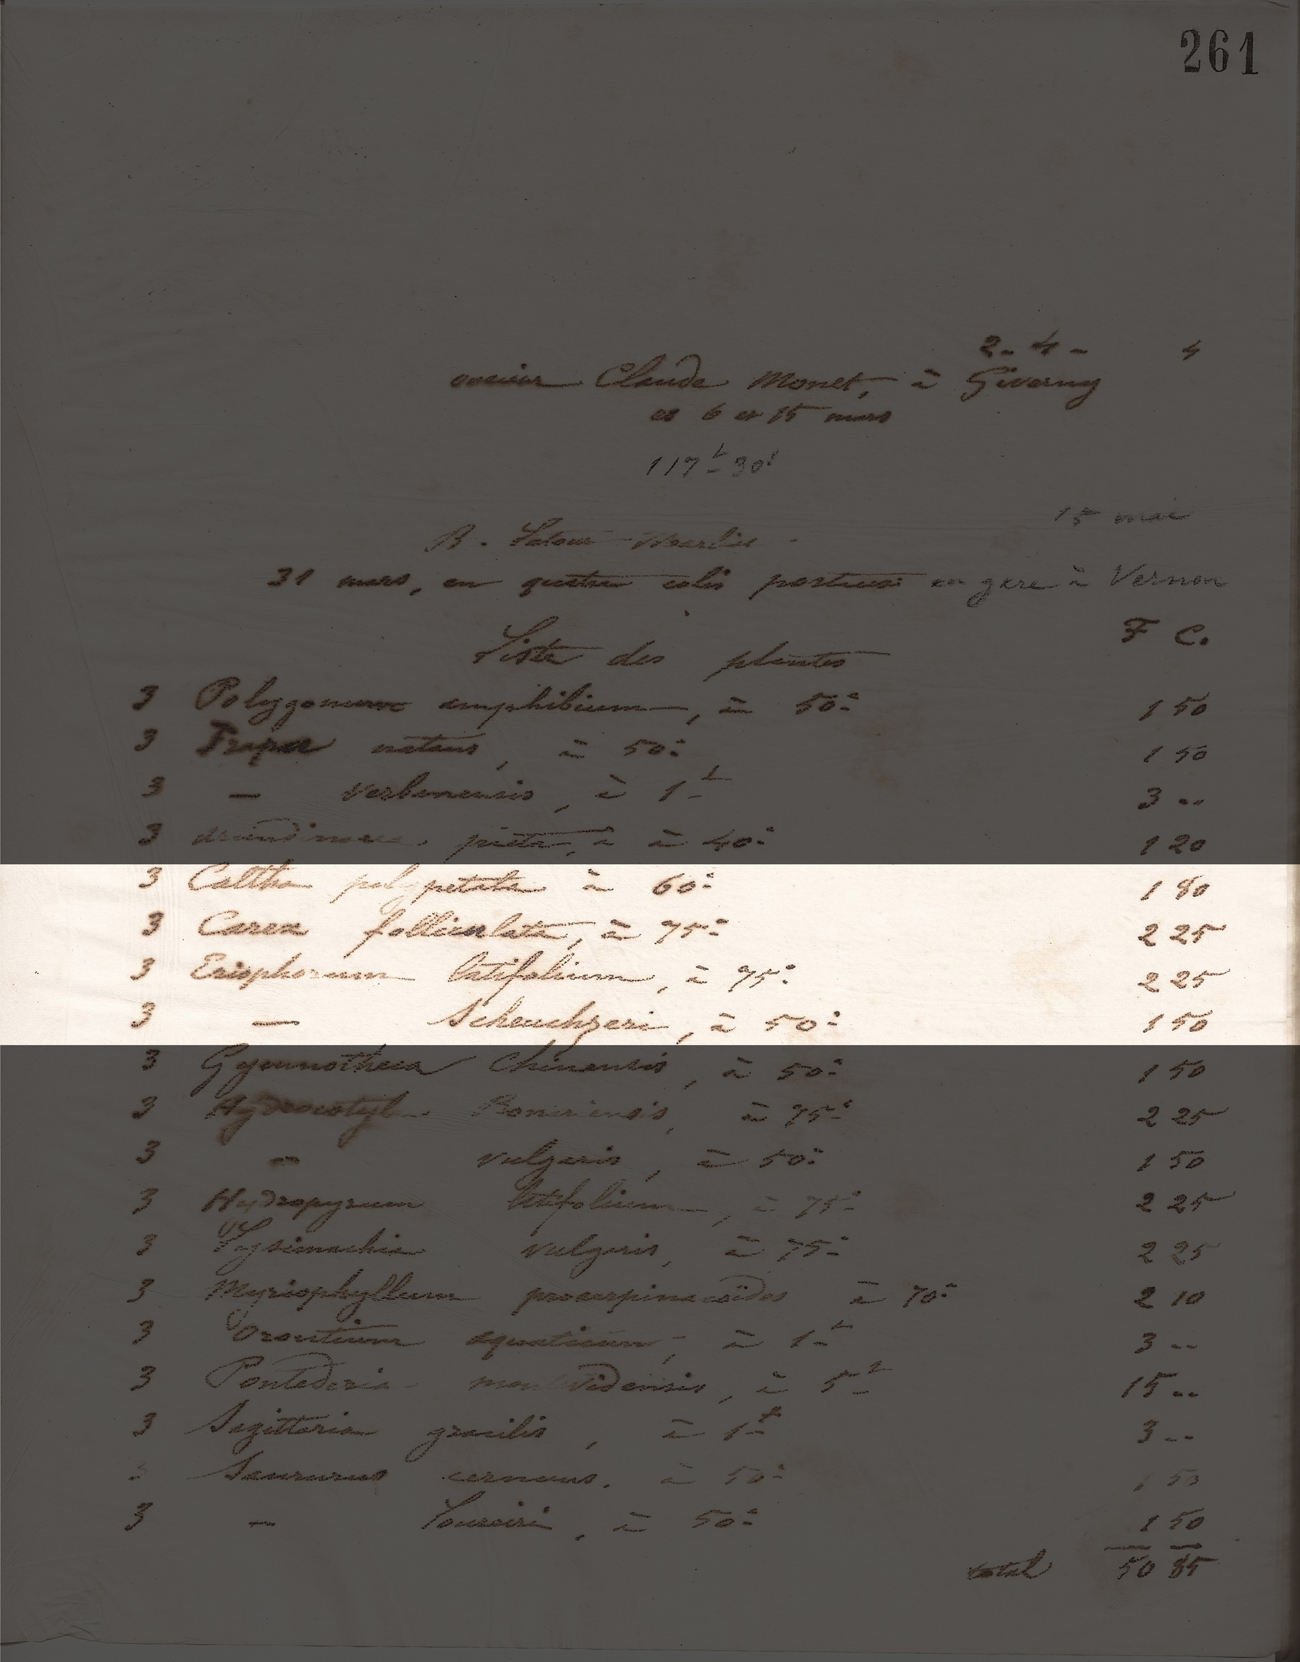 261
2 - 4 - 4
Claude Monet, à Giverny
et 6 et 15 mars
117 f 30 c
15 mai
B. Latour Marliac
31 mars, en quatre colis postaux en gare à Vernon
F C.
Liste des plantes
3 Polygonum amphibium, à 50 c 1 50
3 Trapa natans, à 50 c 1 50
3 — Verbanensis, à 1 f 3 "
3 picta, à 40 c 1 20
3 Caltha polypetala à 60 c 1 80
3 Carex folliculata, à 75 c 2 25
3 Eriophorum latifolium, à 75 c 2 25
3 — Scheuchzeri, à 50 c 1 50
3 Gymnotheca Chinensis, à 50 c 1 50
3 Hydrocotyle Bonariensis, à 75 c 2 25
3 — vulgaris, à 50 c 1 50
3 Hydropyrum latifolium, à 75 c 2 25
3 Lysimachia vulgaris, à 75 c 2 25
3 Myriophyllum proserpinacoïdes à 70 c 2 10
3 Orontium aquaticum, à 1 f 3 "
3 Pontederia montvidensis, à 5 f 15 "
3 Sagittaria gracilis, à 1 f 3 "
3 Saururus cernuus, à 50 c 1 50
3 — Loureiri, à 50 c 1 50
total 50 85